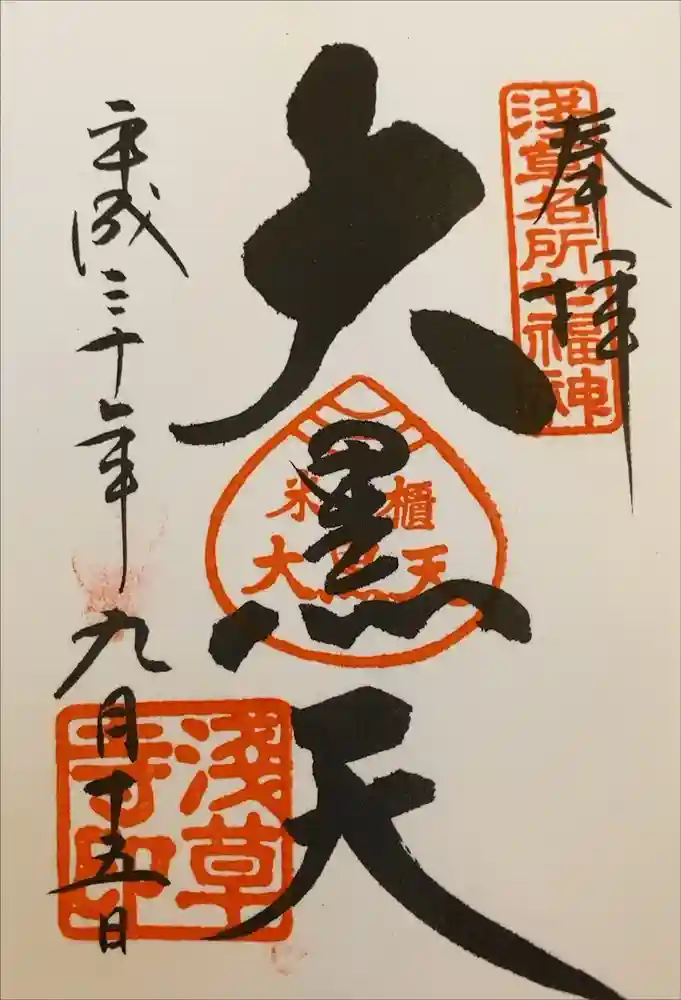 奉拝
浅草名所七福神
大黒天
米櫃
大黒天
浅草
寺印
平成三十年九月十五日